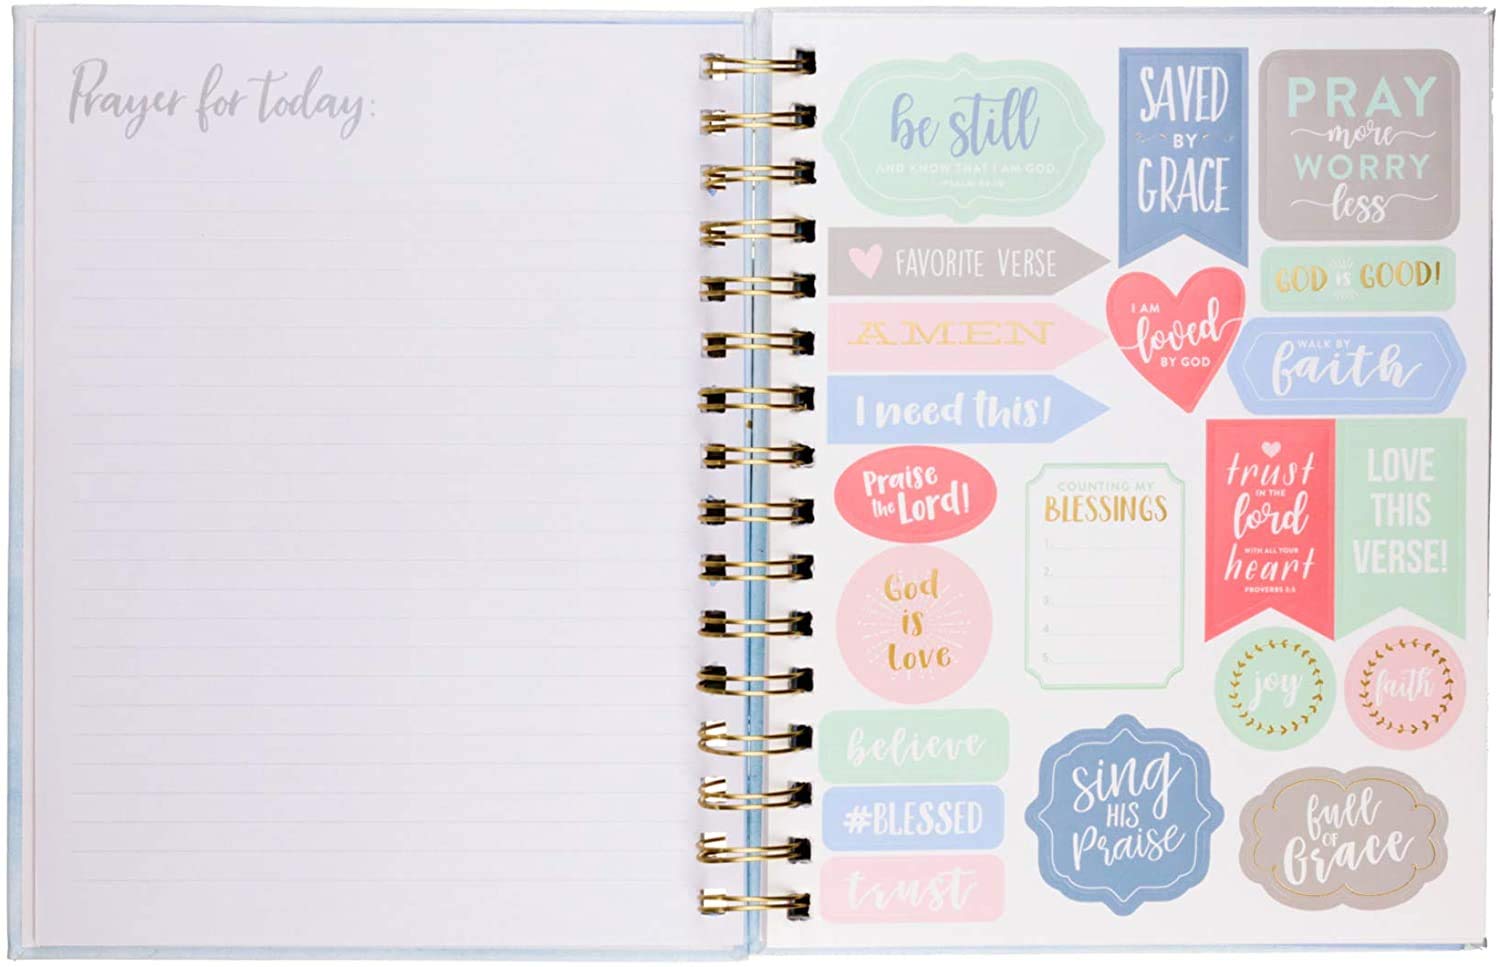 Prayer for today:
be still
AND KNOW THAT I AM GOD.
SAVED
BY
GRACE
PRAY
more
WORRY
less
FAVORITE VERSE
GOD is GOOD!
AMEN
I AM
loved
BY GOD
WALK BY
faith
I need this!
Praise
the Lord!
COUNTING MY
BLESSINGS
1.
2.
3.
4.
5.
trust
IN THE
lord
WITH ALL YOUR
heart
PROVERBS 3:5
LOVE
THIS
VERSE!
God
is
Love
joy
faith
believe
#BLESSED
trust
sing
HIS
Praise
full
OF
Grace